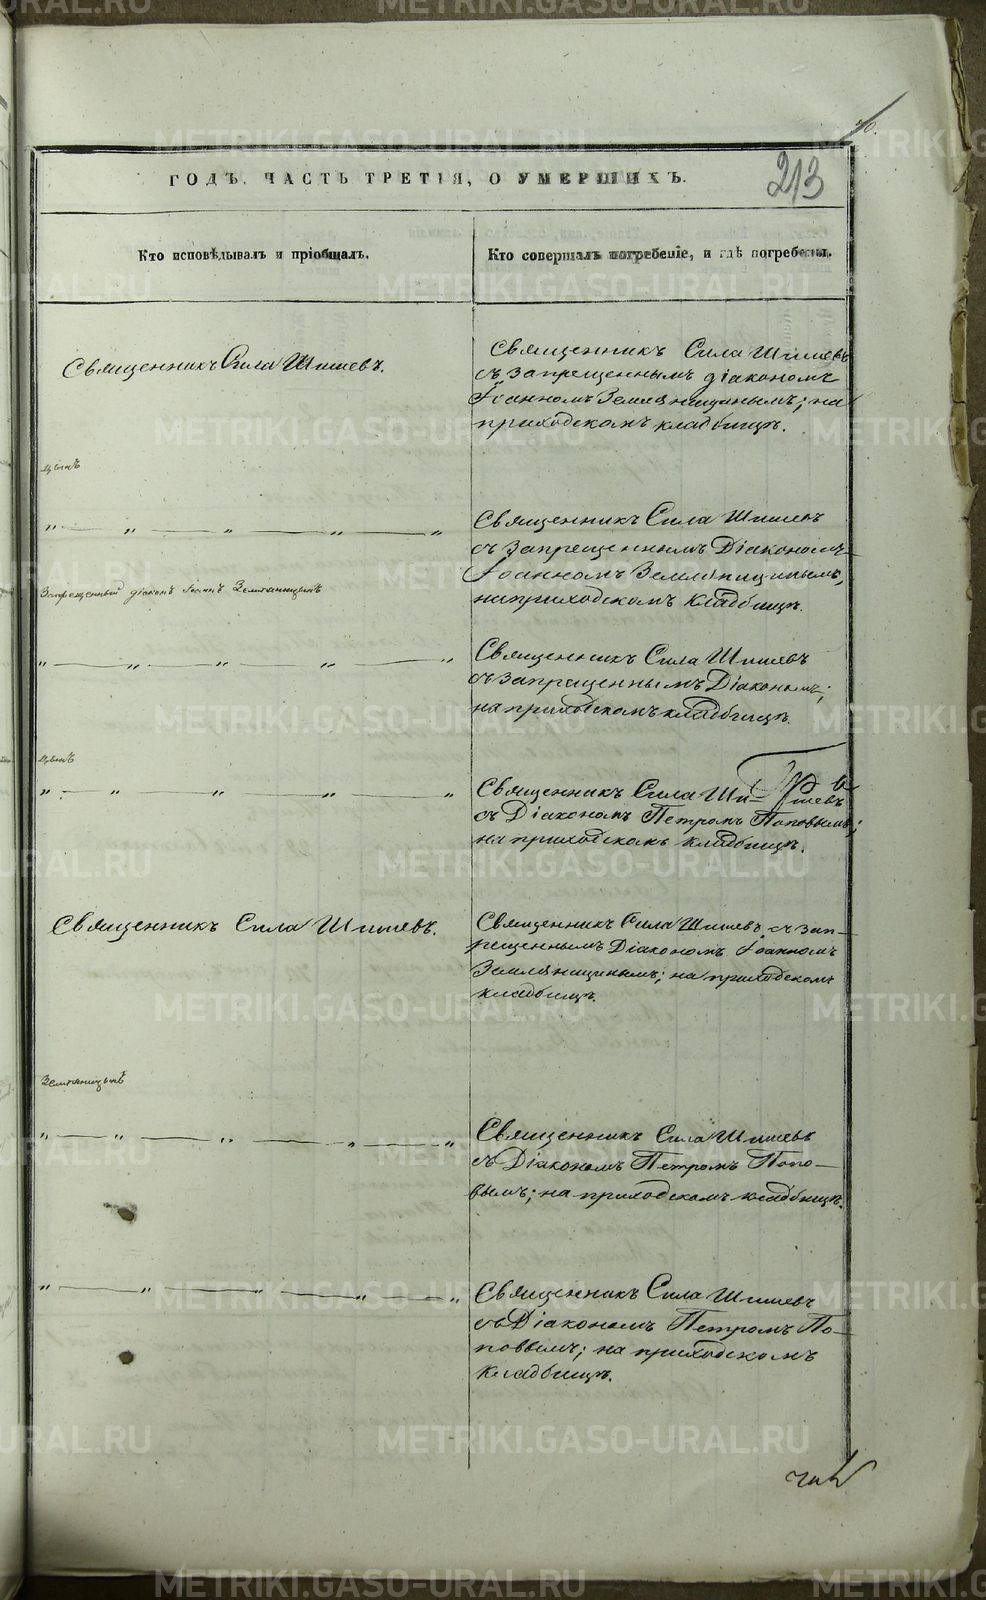 METRIKI.GASO-URAL.RU
70.
213
ГОДЪ, ЧАСТЬ ТРЕТІЯ, О УМЕРШИХЪ.
Кто исповѣдывалъ и пріобщалъ.
Кто совершалъ погребеніе, и гдѣ погребены.
Священникъ Сила Шишевъ.
Священникъ Сила Шишевъ
съ запрещеннымъ діакономъ
Іоанномъ Земляницынымъ; на
приходскомъ кладбищѣ.
цынъ
" — " — " — " — "
Священникъ Сила Шишевъ
съ запрещеннымъ Діакономъ
Іоанномъ Земляницынымъ,
на приходскомъ кладбищѣ.
Запрещенный діаконъ Іоаннъ Земляницынъ
" — " — " — " — "
Священникъ Сила Шишевъ
съ запрещеннымъ Діакономъ;
на приходскомъ кладбищѣ.
цынъ
" — " — " — " — "
Священникъ Сила Ши-шевъ
съ Діакономъ Петромъ Поповымъ;
на приходскомъ кладбищѣ.
Священникъ Сила Шишевъ.
Священникъ Сила Шишевъ съ зап-
рещеннымъ Діакономъ Іоанномъ
Земляницынымъ; на приходскомъ
кладбищѣ.
Земляницынъ
" — " — " — " — "
Священникъ Сила Шишевъ
съ Діакономъ Петромъ Попо-
вымъ; на приходскомъ кладбищѣ.
" — " — " — " — "
Священникъ Сила Шишевъ
съ Діакономъ Петромъ По-
повымъ; на приходскомъ
кладбищѣ.